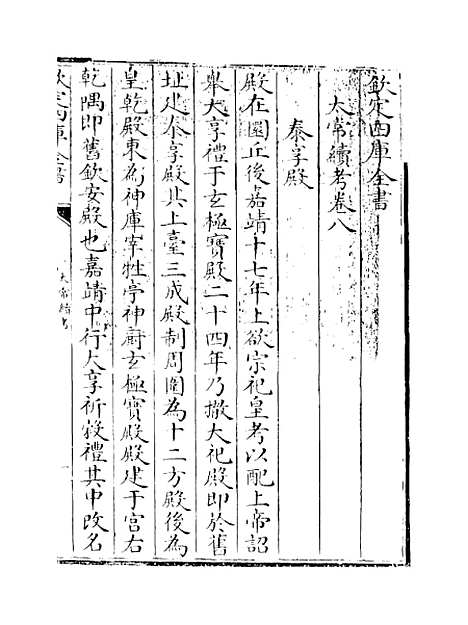 欽定四庫全書
太常續考卷八
泰享殿
殿在圜丘後嘉靖十七年上欲宗祀皇考以配上帝詔
舉大享禮于玄極寶殿二十四年乃撤大祀殿即於舊
址建泰享殿其上臺三成殿制周圍為十二方殿後為
皇乾殿東為神庫宰牲亭神厨玄極寶殿殿建于宫右
乾隅即舊欽安殿也嘉靖中行大享祈穀禮其中改名
欽定四庫全書
太常續考
一